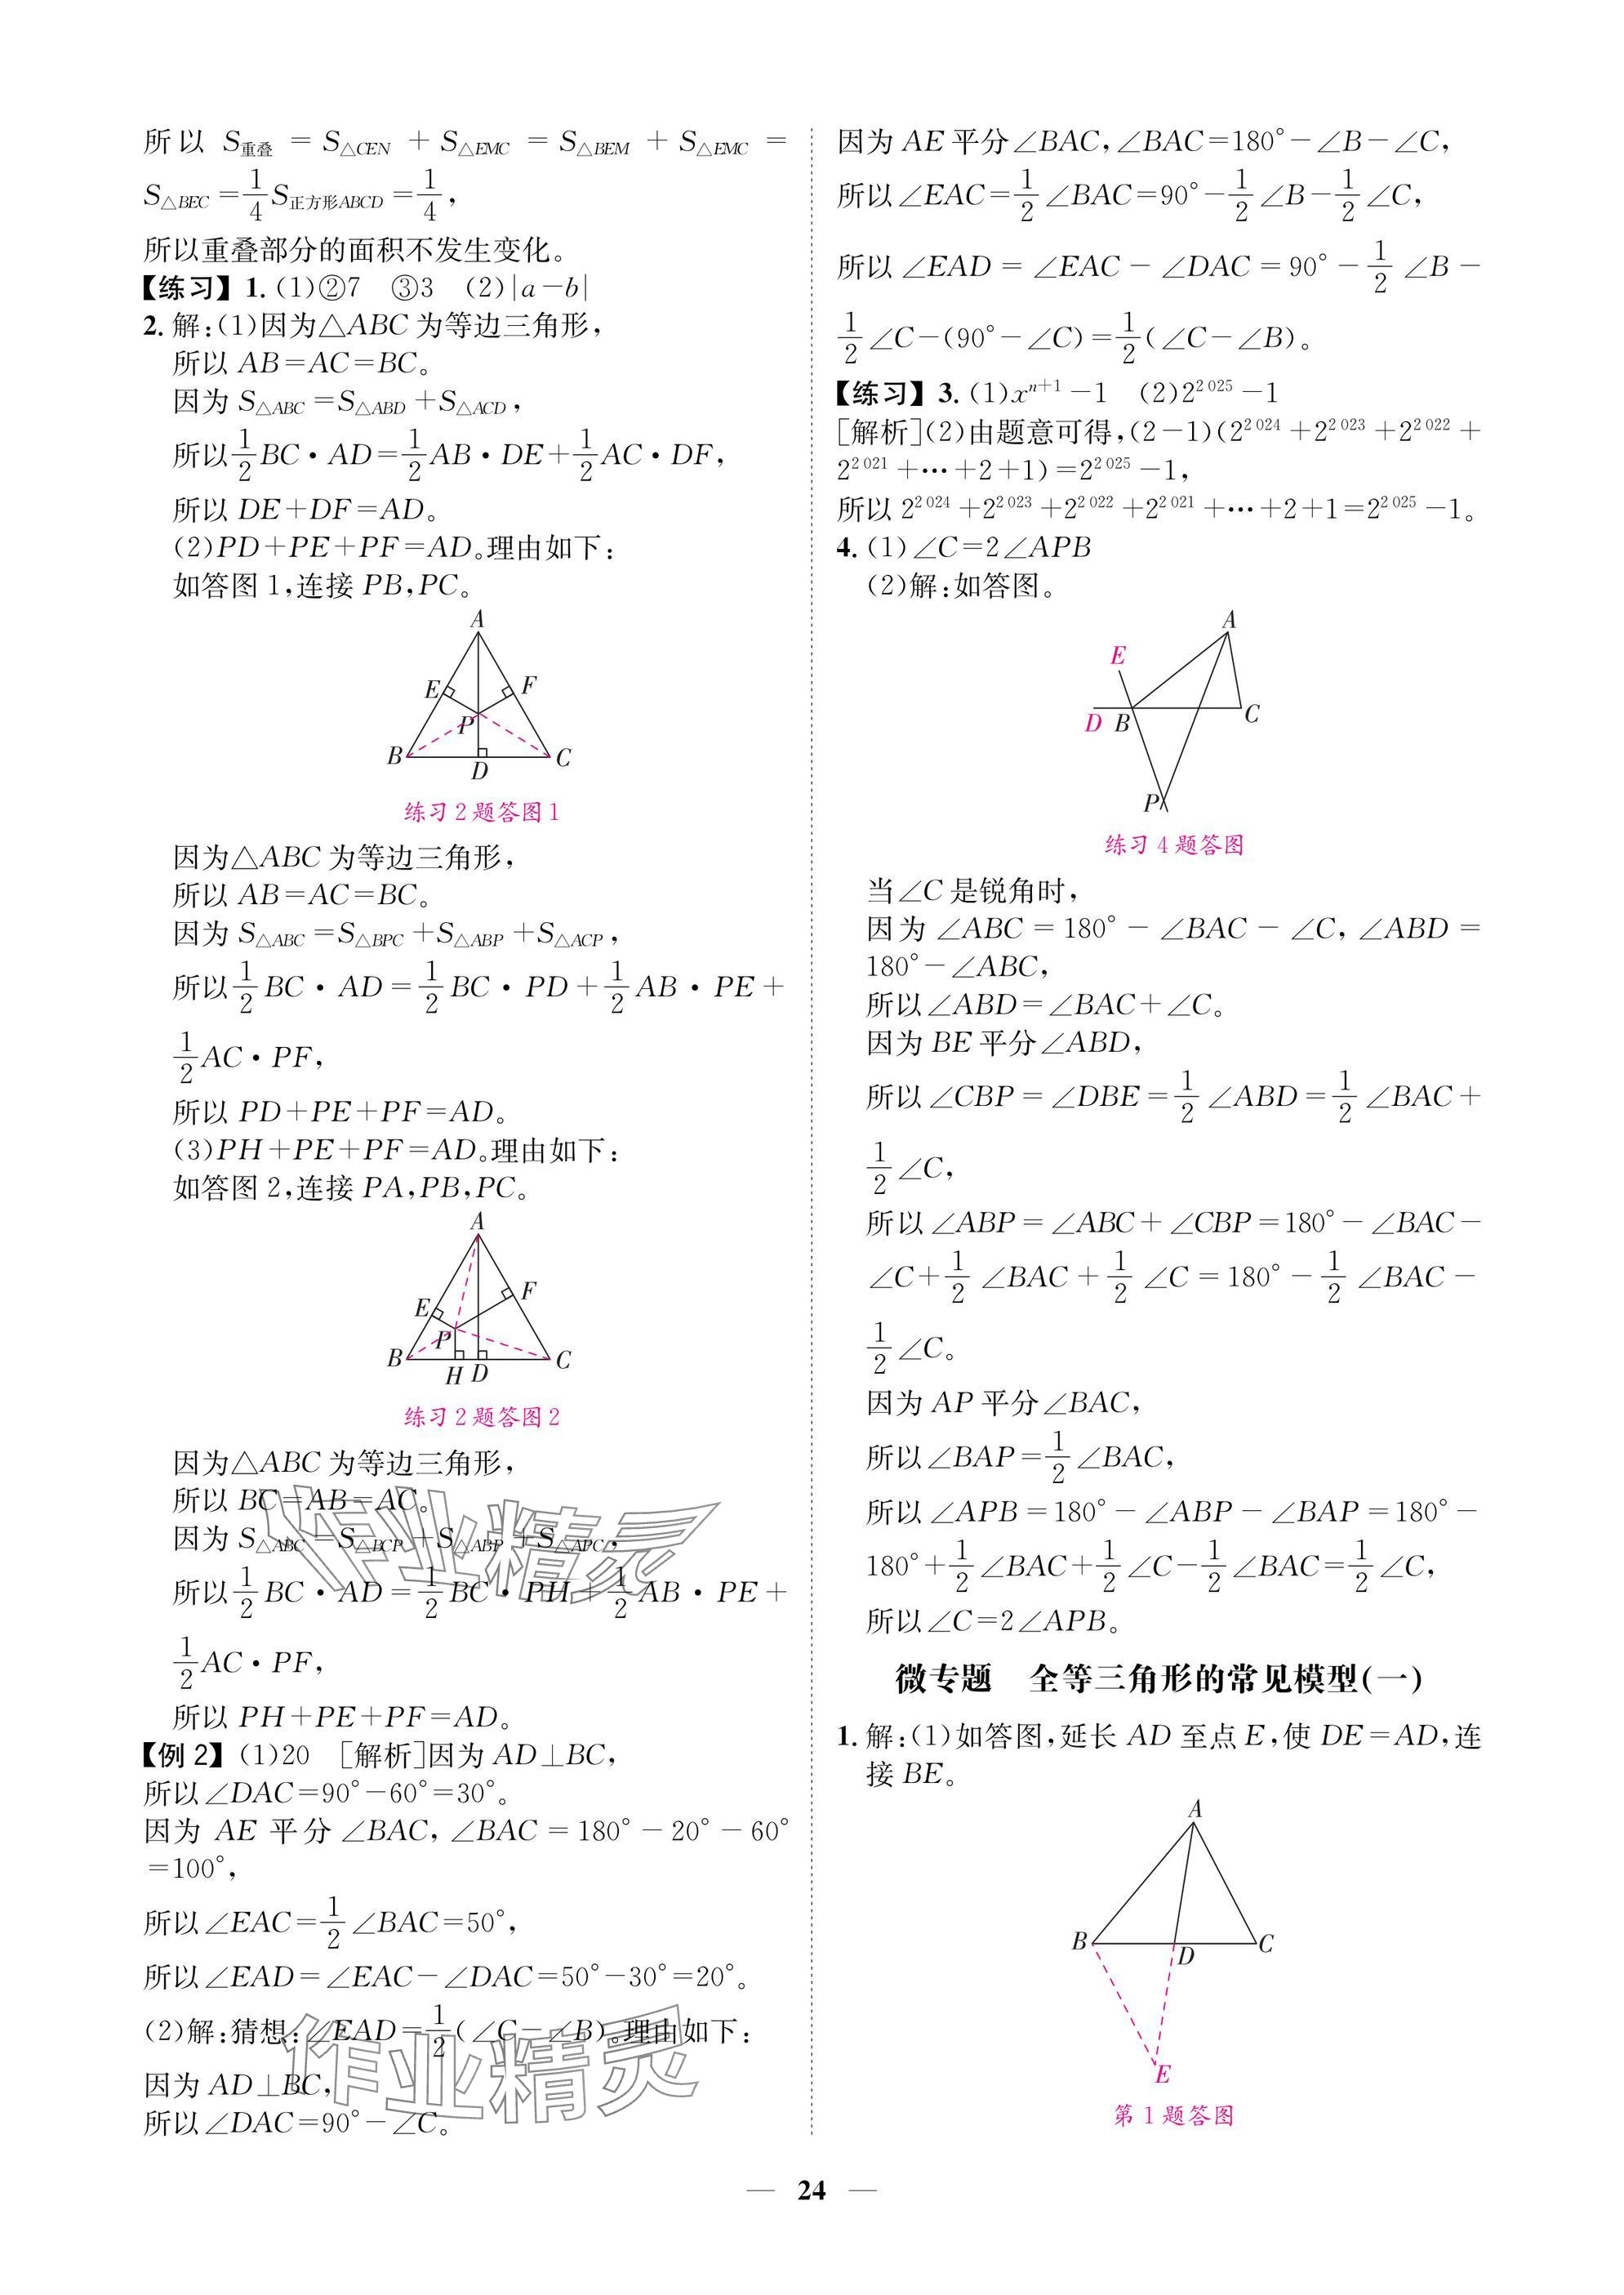 所以 S重叠 = S△CEN + S△EMC = S△BEM + S△EMC =
S△BEC = 1/4 S正方形ABCD = 1/4，
所以重叠部分的面积不发生变化。
【练习】1. (1)②7　③3　(2)|a－b|
2. 解：(1)因为△ABC 为等边三角形，
所以 AB＝AC＝BC。
因为 S△ABC＝S△ABD＋S△ACD，
所以 1/2 BC·AD＝1/2 AB·DE＋1/2 AC·DF，
所以 DE＋DF＝AD。
(2)PD＋PE＋PF＝AD。理由如下：
如答图 1，连接 PB，PC。
A
E
F
P
B
D
C
练习 2 题答图 1
因为△ABC 为等边三角形，
所以 AB＝AC＝BC。
因为 S△ABC＝S△BPC＋S△ABP＋S△ACP，
所以 1/2 BC·AD＝1/2 BC·PD＋1/2 AB·PE＋
1/2 AC·PF，
所以 PD＋PE＋PF＝AD。
(3)PH＋PE＋PF＝AD。理由如下：
如答图 2，连接 PA，PB，PC。
A
E
F
P
B
H D
C
练习 2 题答图 2
因为△ABC 为等边三角形，
所以 BC＝AB＝AC。
因为 S△ABC＝S△BCP＋S△ABP＋S△APC，
所以 1/2 BC·AD＝1/2 BC·PH＋1/2 AB·PE＋
1/2 AC·PF，
所以 PH＋PE＋PF＝AD。
【例 2】(1)20　[解析]因为 AD⊥BC，
所以∠DAC＝90°－60°＝30°。
因为 AE 平分∠BAC，∠BAC＝180°－20°－60°
＝100°，
所以∠EAC＝1/2∠BAC＝50°，
所以∠EAD＝∠EAC－∠DAC＝50°－30°＝20°。
(2)解：猜想：∠EAD＝1/2(∠C－∠B)。理由如下：
因为 AD⊥BC，
所以∠DAC＝90°－∠C。
作业精灵
作业精灵
因为 AE 平分∠BAC，∠BAC＝180°－∠B－∠C，
所以∠EAC＝1/2∠BAC＝90°－1/2∠B－1/2∠C，
所以∠EAD＝∠EAC－∠DAC＝90°－1/2∠B－
1/2∠C－(90°－∠C)＝1/2(∠C－∠B)。
【练习】3. (1)xⁿ⁺¹－1　(2)2^2 025－1
[解析](2)由题意可得，(2－1)(2^2 024＋2^2 023＋2^2 022＋
2^2 021＋…＋2＋1)＝2^2 025－1，
所以 2^2 024＋2^2 023＋2^2 022＋2^2 021＋…＋2＋1＝2^2 025－1。
4. (1)∠C＝2∠APB
(2)解：如答图。
A
E
D B
C
P
练习 4 题答图
当∠C 是锐角时，
因为∠ABC＝180°－∠BAC－∠C，∠ABD＝
180°－∠ABC，
所以∠ABD＝∠BAC＋∠C。
因为 BE 平分∠ABD，
所以∠CBP＝∠DBE＝1/2∠ABD＝1/2∠BAC＋
1/2∠C，
所以∠ABP＝∠ABC＋∠CBP＝180°－∠BAC－
∠C＋1/2∠BAC＋1/2∠C＝180°－1/2∠BAC－
1/2∠C。
因为 AP 平分∠BAC，
所以∠BAP＝1/2∠BAC，
所以∠APB＝180°－∠ABP－∠BAP＝180°－
180°＋1/2∠BAC＋1/2∠C－1/2∠BAC＝1/2∠C，
所以∠C＝2∠APB。
微专题　全等三角形的常见模型(一)
1. 解：(1)如答图，延长 AD 至点 E，使 DE＝AD，连
接 BE。
A
B
D
C
E
第 1 题答图
— 24 —